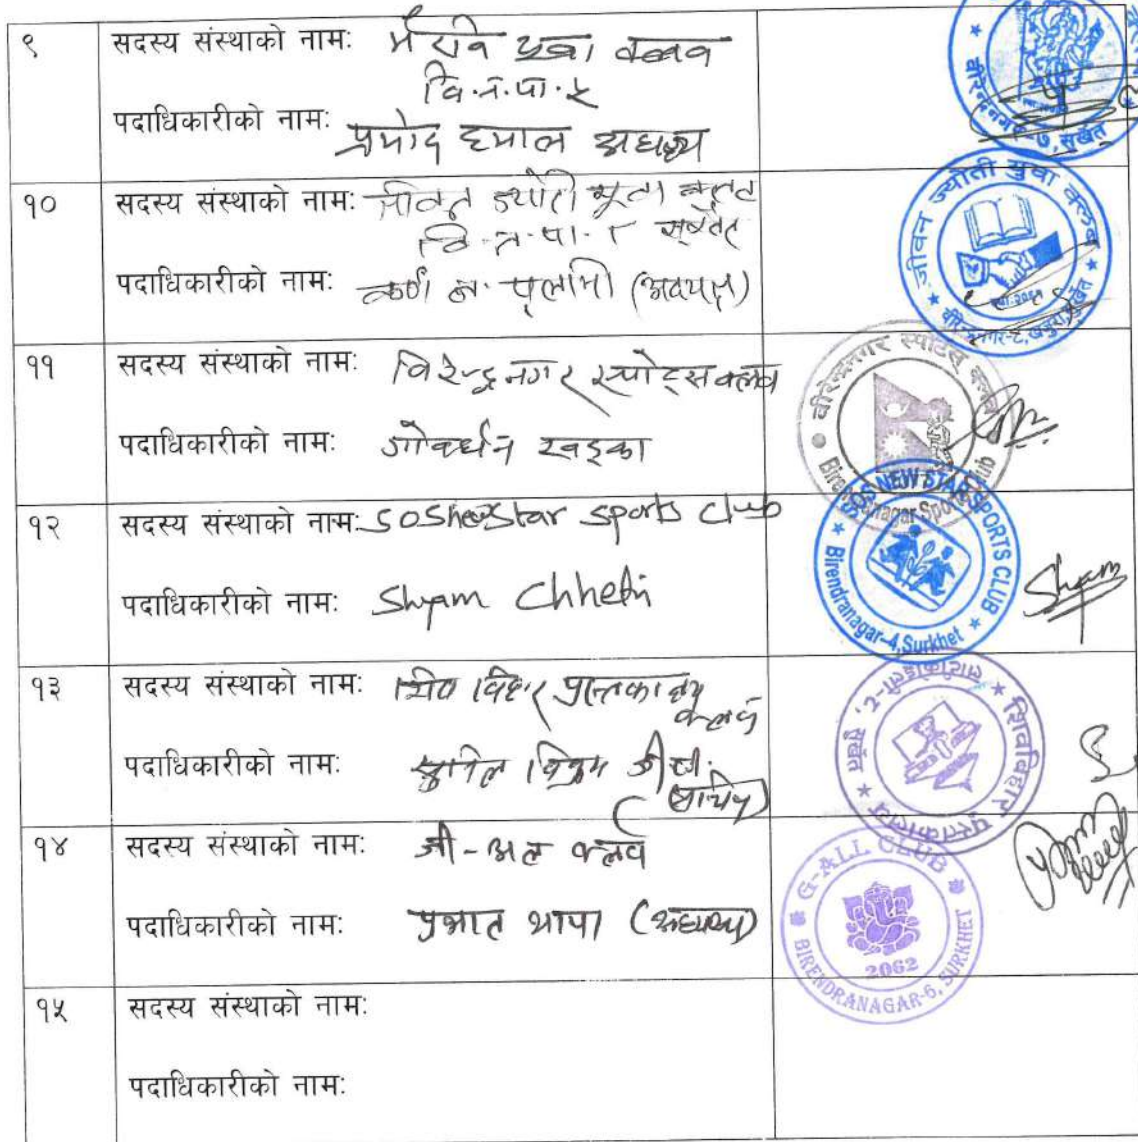 ९
सदस्य संस्थाको नामः भैरव युवा क्लव
वि.न.पा. ५
पदाधिकारीको नामः प्रमोद हमाल अध्यक्ष
वीरेन्द्रनगर-७, सुर्खेत
१०
सदस्य संस्थाको नामः जीवन ज्योती युवा क्लव
वि.न.पा. ८ सुर्खेत
पदाधिकारीको नामः कर्ण ब. पुलामी (अध्यक्ष)
जीवन ज्योती युवा क्लब
वीरेन्द्रनगर-८, खजुरा, सुर्खेत
११
सदस्य संस्थाको नामः विरेन्द्रनगर स्पोर्ट्स क्लव
पदाधिकारीको नामः गोवर्धन खड्का
वीरेन्द्रनगर स्पोर्टस् क्लब
Birendranagar Sports Club
१२
सदस्य संस्थाको नामः SOS new Star sports club
पदाधिकारीको नामः Shyam Chhetri
SOS NEW STAR SPORTS CLUB
Birendranagar-4, Surkhet
Shyam
१३
सदस्य संस्थाको नामः शिव विहार पुस्तकालय
क्लव
पदाधिकारीको नामः सुनिल विक्रम जी.सी.
(सचिव)
शिवविहार पुस्तकालय
सुर्खेत
१४
सदस्य संस्थाको नामः जी-अल क्लव
पदाधिकारीको नामः प्रभात थापा (अध्यक्ष)
G-ALL CLUB
2062
BIRENDRANAGAR-6, SURKHET
१५
सदस्य संस्थाको नामः
पदाधिकारीको नामः